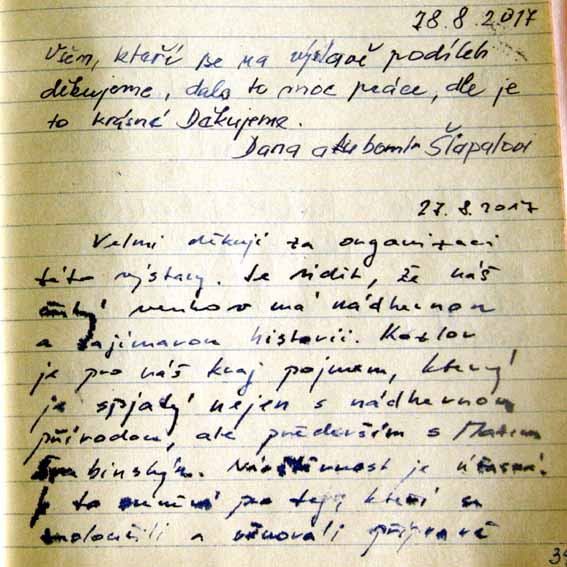 28.8.2017
Všem, kteří se na výstavě podíleli
děkujeme, dalo to moc práce, dle je
to krásné Děkujeme.
Dana a Lubomír Šlapalovi
27.8.2017
Velmi děkuji za organizaci
této výstavy. Je vidět, že náš
český venkov má nádhernou
a zajímavou historii. Kozlov
je pro náš kraj pojmem, který
je spjatý nejen s nádhernou
přírodou, ale především s Maxem
Švabinským. Návštěvnost je úžasná.
Je to pro ty, kteří se
a věnovali přípravě